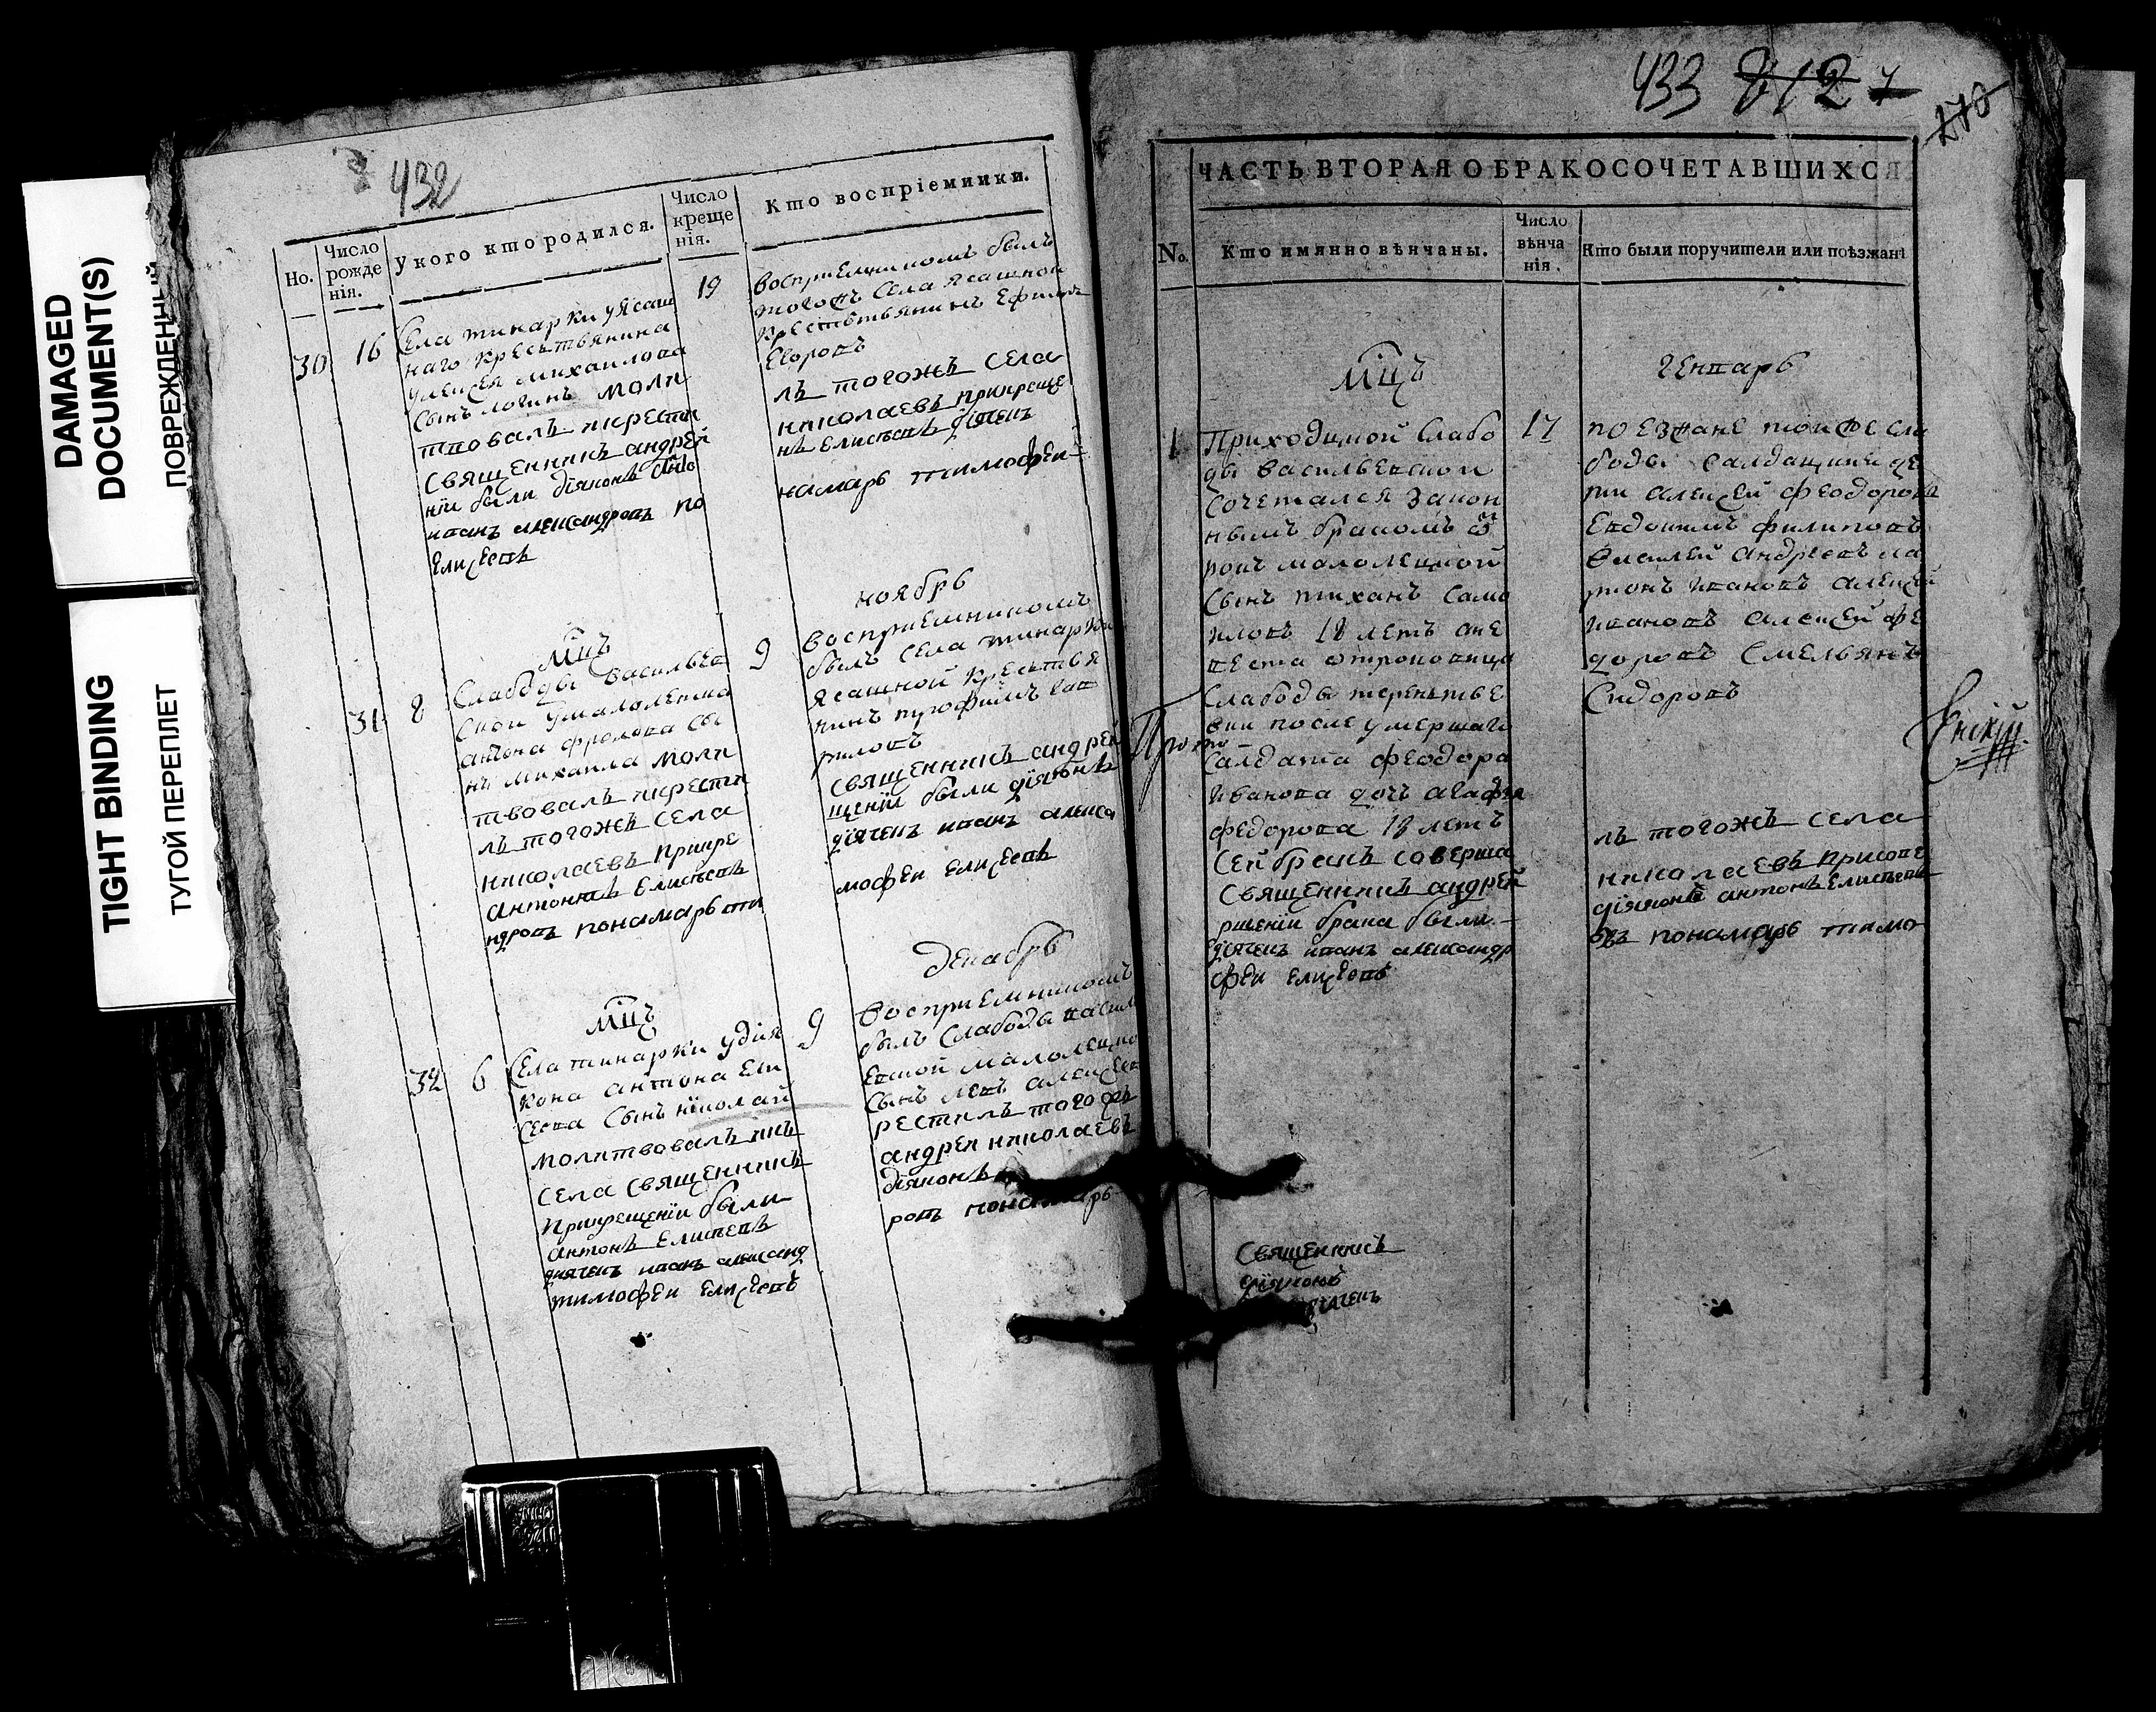 DAMAGED
DOCUMENT(S)
ПОВРЕЖДЕННЫЙ
TIGHT BINDING
ТУГОЙ ПЕРЕПЛЕТ
432
Но.
Число рожде нія.
У кого кто родился.
Число креще нія.
Кто воспріемники.
30
16
Села тинарки уясаш
наго крестьянина
михаилова
Сынъ логинъ моли
твовалъ икрести
Священникъ андрей
ніи были діяконъ
иванъ александровъ по
Елисеевъ
19
воспріемникомъ былъ
тогожъ Села ясашной
крестьянинъ Ефимъ
Егоровъ
лъ тогожъ села
николаевъ прикреще
нъ Елисеевъ дьячекъ
намарь тимофеи
Мцъ
ноябрь
31
8
Слабоды Василье
Ской умалолетна
антона фролова сы
нъ михаила моли
твовалъ икрести
лъ тогожъ села
николаевъ прикре
антонъ Елисеевъ
ндровъ понамарь ти
9
воспріемникомъ
былъ села тинарки
ясашной крестья
нинъ трофимъ гав
риловъ
священникъ андрей
щеніи были діяконъ
дьячекъ иванъ алекса
мофеи елисеевъ
Мцъ
декабрь
32
6
Села тинарки удія
кона антона Ели
сеева Сынъ николай
молитвовалъ икъ
села священникъ
Прикрещеніи были
антонъ Елисеевъ
дьячекъ иванъ александ
тимофеи елисеевъ
9
Воспріемникомъ
былъ Слабоды васил
евской малолетно
Сынъ левъ алексеев
рестилъ тогожъ
андреи николаевъ
діяконъ
ровъ понамарь
433 812 7
270
ЧАСТЬ ВТОРАЯ О БРАКОСОЧЕТАВШИХСЯ
No.
Кто имянно вѣнчаны.
Число вѣнча нія.
Кто были поручители или поѣзжані
Мцъ
генварь
1
Приходцкой Слабо
ды васильевской
Сочетался закон
нымъ бракомъ
рои малолецкой
Сынъ тиханъ само
иловъ 18 летъ а не
веста отроковица
Слабоды терентье
вки после умершаго
Салдата феодора
иванова дочь агафья
федорова 18 летъ
Сей бракъ соверша
Священникъ андрей
ршеніи брака были
дьячекъ иванъ александр
феи елисеевъ
17
поезжане тойже сла
боды Салдацкие де
ти алексей феодоров
Евдокимъ филиповъ
Василей андреевъ ла
ріонъ ивановъ алексей
ивановъ алексей фе
доровъ Емельянъ
Сидоровъ
лъ тогожъ села
николаевъ присове
діяконъ антонъ Елисеевъ
овъ понамарь тимо
Священникъ
діяконъ
дьячекъ